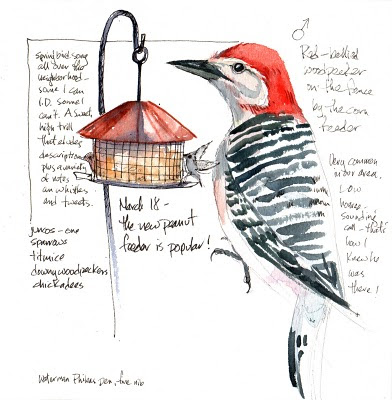 spring bird song
all over the
neighborhood –
some I can
I.D. some I
can't. A sweet,
high trill
that eludes
description
plus a variety
of notes
on whistles
and tweets.
juncos – one
sparrows
titmice
downy woodpeckers
chickadees
March 18 –
the new peanut
feeder is popular!
♂
Red-bellied
woodpecker
on the fence
by the corn
feeder
Very common
in our area.
Low
hoarse-
sounding
call – that's
how I
knew he
was
there!
Waterman Phileas pen, fine nib